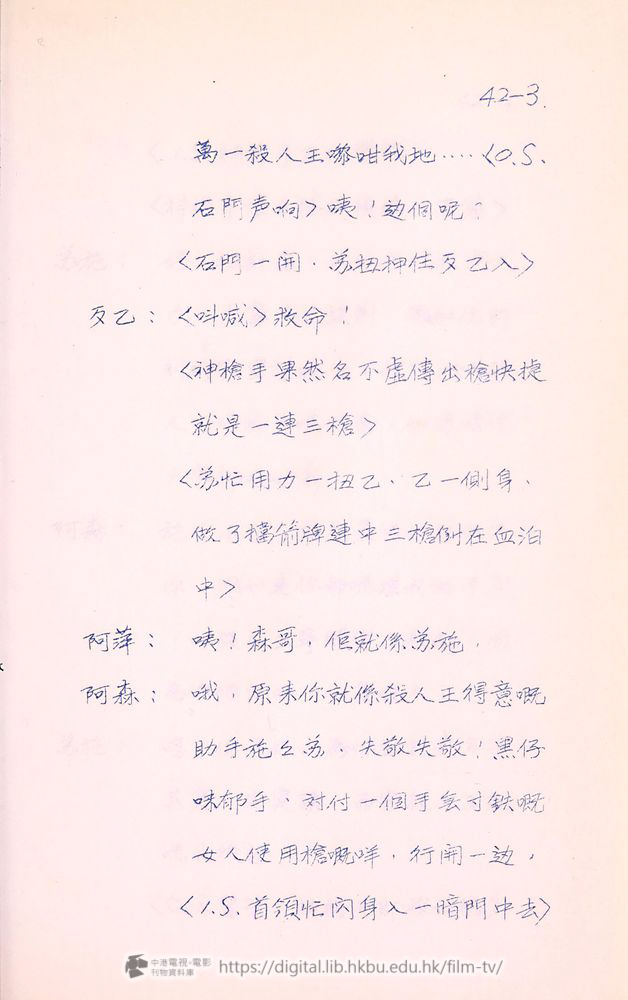 42-3.
萬一殺人王嚟咁我地‥‥〈O.S.
石門声响〉咦!边個呢?
〈石門一開.苏扭押住歹乙入〉
歹乙:〈叫喊〉救命!
〈神槍手果然名不虛傳出槍快捷
就是一連三槍〉
〈苏忙用力一扭乙、乙一側身、
做了擋箭牌連中三槍倒在血泊
中〉
阿萍: 咦!森哥,佢就係苏施,
阿森: 哦,原来你就係殺人王得意嘅
助手施公苏、失敬失敬!黑仔
咪郁手、対付一個手無寸鉄嘅
女人使用槍嘅咩,行開一边,
〈I.S.首領忙閃身入一暗門中去〉
中港電視・電影
刊物資料庫
https://digital.lib.hkbu.edu.hk/film-tv/